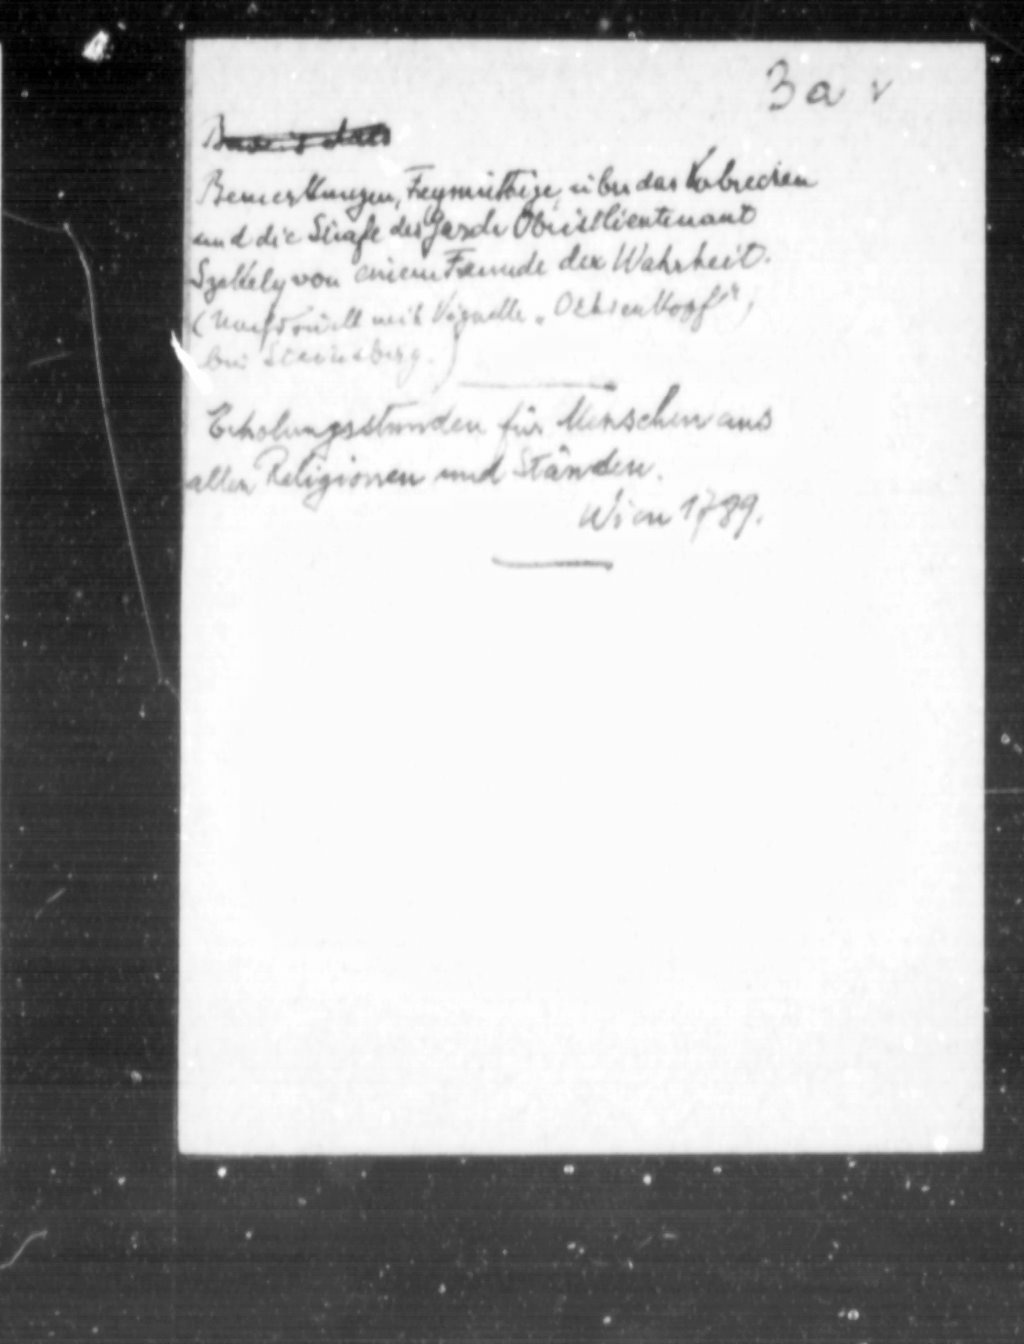 3 a v
Bemerkungen, Freymüthige, über das Verbrechen
und die Strafe des Garde Obristlieutenant
Szekely von einem Freunde der Wahrheit.
(Nachdruck mit Vignette „Ochsenkopf",
bei
Erholungsstunden für Menschen aus
allen Religionen und Ständen.
Wien 1789.